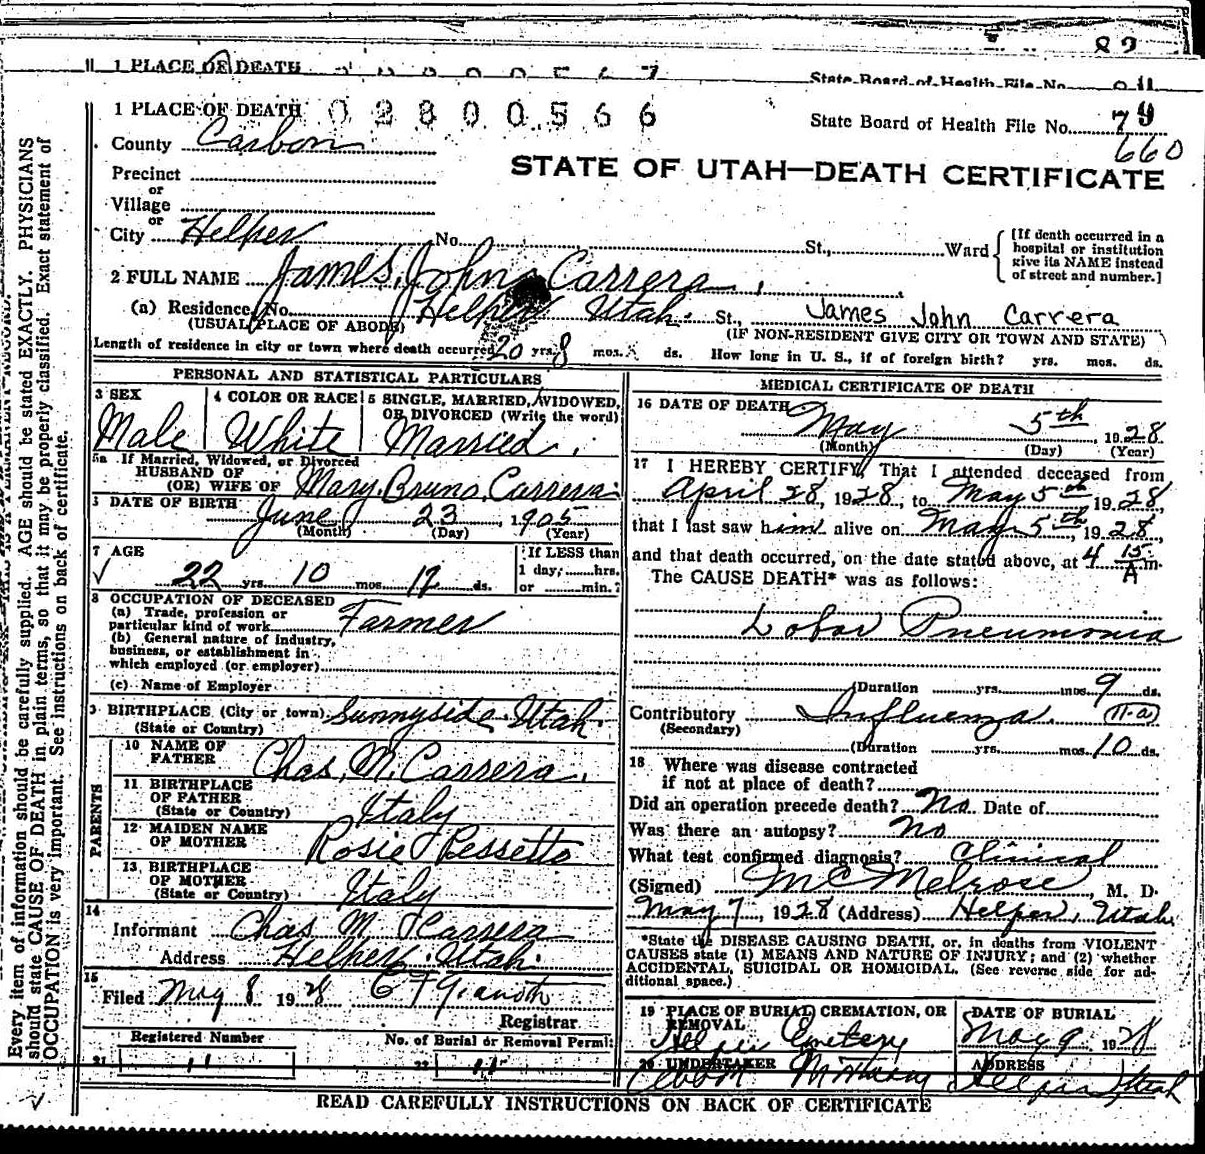 82
1 PLACE OF DEATH
State Board of Health File No.
1 PLACE OF DEATH 02800566
State Board of Health File No. 79
660
County Carbon
STATE OF UTAH—DEATH CERTIFICATE
Precinct
or
Village
or
City Helper No. St., Ward
[If death occurred in a
hospital or institution
give its NAME instead
of street and number.]
2 FULL NAME James John Carrera
(a) Residence, No. Helper Utah. St., James John Carrera
(USUAL PLACE OF ABODE) (IF NON-RESIDENT GIVE CITY OR TOWN AND STATE)
Length of residence in city or town where death occurred 20 yrs. 8 mos. ds. How long in U. S., if of foreign birth? yrs. mos. ds.
PERSONAL AND STATISTICAL PARTICULARS
3 SEX
Male
4 COLOR OR RACE
White
5 SINGLE, MARRIED, WIDOWED,
OR DIVORCED (Write the word)
Married.
5a If Married, Widowed, or Divorced
HUSBAND OF
(OR) WIFE OF Mary Bruno Carrera
DATE OF BIRTH
June 23 1905
(Month) (Day) (Year)
7 AGE
22 yrs. 10 mos. 12 ds.
If LESS than
1 day, hrs.
or min.?
8 OCCUPATION OF DECEASED
(a) Trade, profession or
particular kind of work Farmer
(b) General nature of industry,
business, or establishment in
which employed (or employer)
(c) Name of Employer
9 BIRTHPLACE (City or town) Sunnyside, Utah.
(State or Country)
PARENTS
10 NAME OF
FATHER Chas. M. Carrera.
11 BIRTHPLACE
OF FATHER
(State or Country) Italy
12 MAIDEN NAME
OF MOTHER Rosie Bessetto
13 BIRTHPLACE
OF MOTHER
(State or Country) Italy
14
Informant Chas M Carrera
Address Helper Utah.
15
Filed May 8 1928
Registrar
Registered Number No. of Burial or Removal Permit
21 11 22 11
MEDICAL CERTIFICATE OF DEATH
16 DATE OF DEATH
May 5th, 1928
(Month) (Day) (Year)
17 I HEREBY CERTIFY, That I attended deceased from
April 28, 1928, to May 5th 1928,
that I last saw him alive on May 5th, 1928,
and that death occurred, on the date stated above, at 4 15 A m.
The CAUSE DEATH* was as follows:
Lobar Pneumonia
(Duration yrs. mos. 9 ds.
Contributory Influenza. 11-a
(Secondary)
(Duration yrs. mos. 10 ds.
18 Where was disease contracted
if not at place of death?
Did an operation precede death? No Date of
Was there an autopsy? No
What test confirmed diagnosis? Clinical
(Signed) Mc Melrose, M. D.
May 7, 1928 (Address) Helper, Utah
*State the DISEASE CAUSING DEATH, or, in deaths from VIOLENT
CAUSES state (1) MEANS AND NATURE OF INJURY; and (2) whether
ACCIDENTAL, SUICIDAL OR HOMICIDAL. (See reverse side for ad-
ditional space.)
19 PLACE OF BURIAL, CREMATION, OR
REMOVAL
Helper Cemetery
DATE OF BURIAL
May 9 1928
20 UNDERTAKER
Mortuary
ADDRESS
Helper, Utah
READ CAREFULLY INSTRUCTIONS ON BACK OF CERTIFICATE
Every item of information should be carefully supplied. AGE should be stated EXACTLY. PHYSICIANS
should state CAUSE OF DEATH in plain terms, so that it may be properly classified. Exact statement of
OCCUPATION is very important. See instructions on back of certificate.